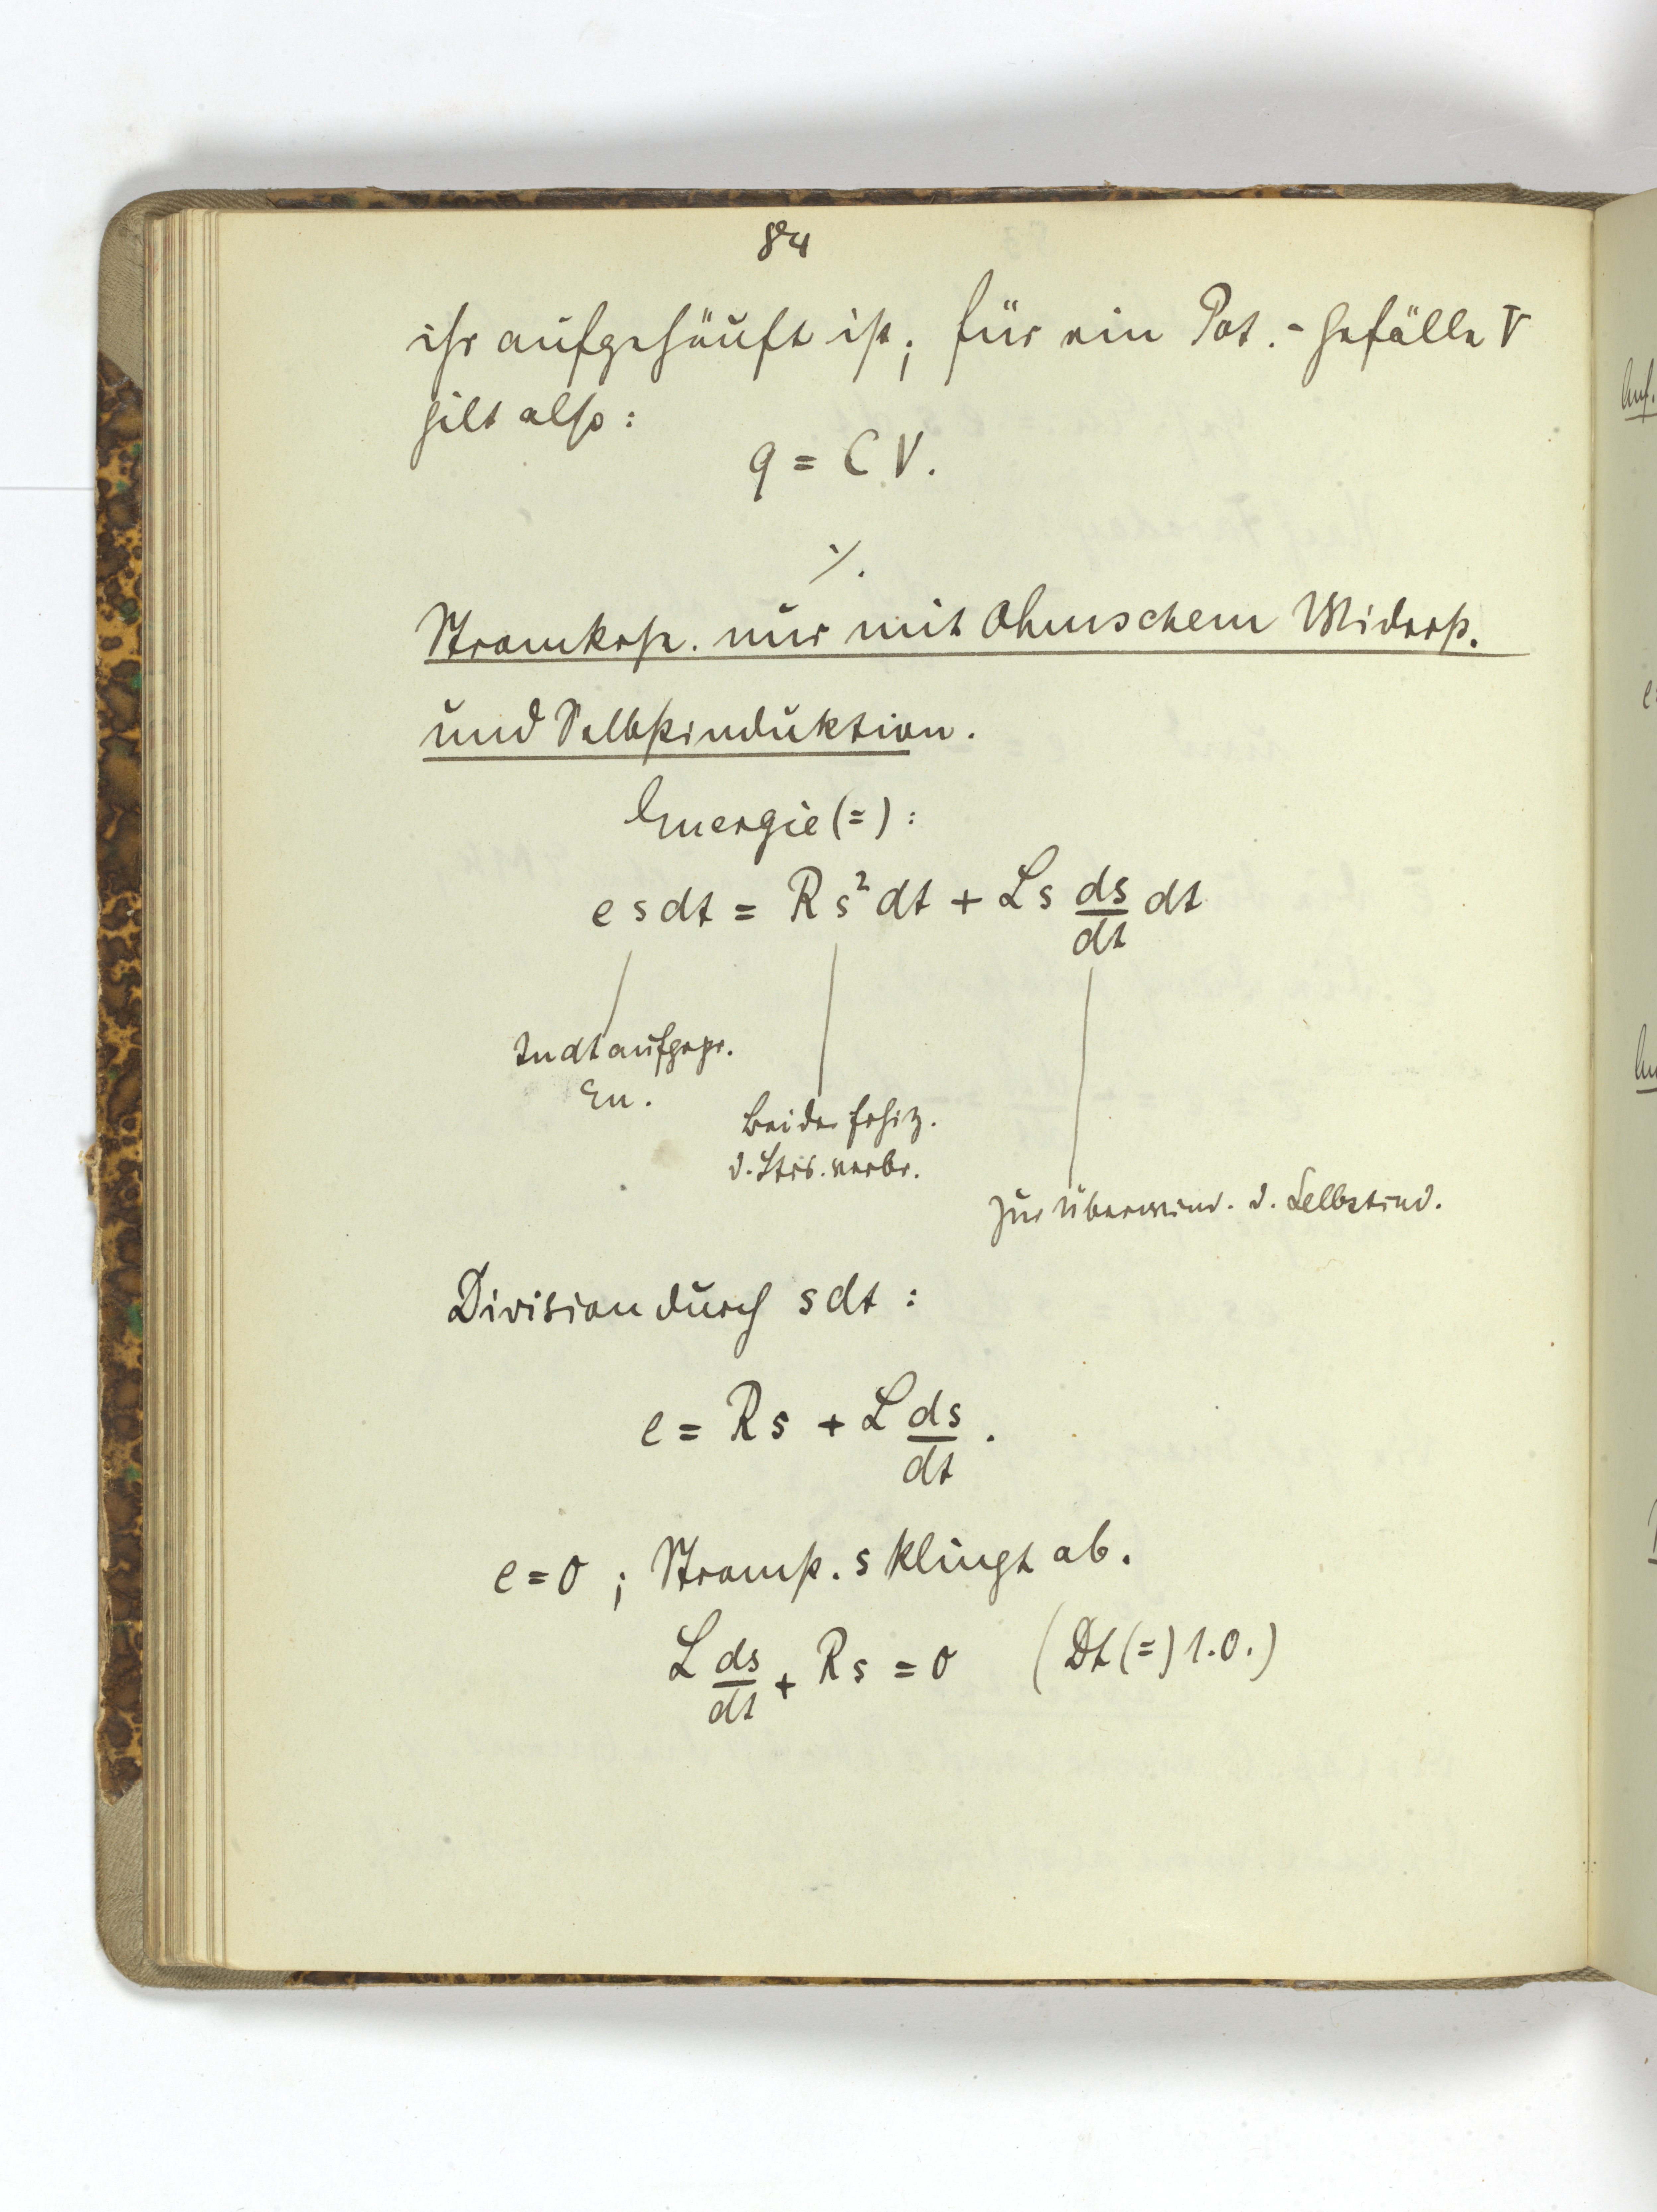 84
ihr aufgehäuft ist; für ein Pot.-Gefälle V
gilt also:
q = C V.
·/.
Stromkrst. nur mit Ohmschem Widerst.
und Selbstinduktion.
Energie (=) :
e s dt = R s² dt + L s ds/dt dt
In dt aufgespr.
En.
Bei der Erhitz.
d. Strs. verbr.
Zur Überwind. d. Selbstind.
Division durch s dt :
e = R s + L ds/dt .
e = 0 ; Stromst. s klingt ab.
L ds/dt + R s = 0 (Dt (=) 1. O.)